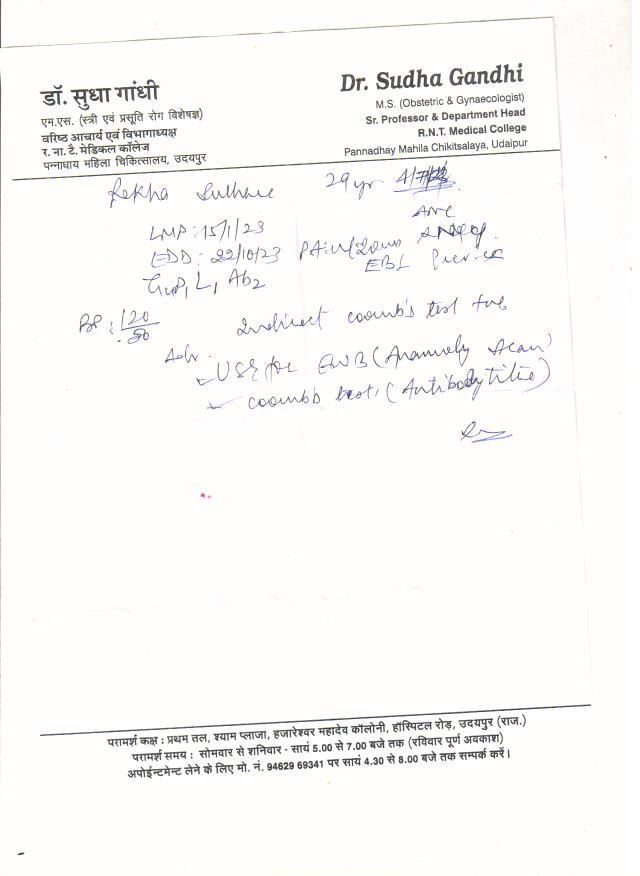 डॉ. सुधा गांधी
एम.एस. (स्त्री एवं प्रसूति रोग विशेषज्ञ)
वरिष्ठ आचार्य एवं विभागाध्यक्ष
र. ना. टै. मेडिकल कॉलेज
पन्नाधाय महिला चिकित्सालय, उदयपुर
Dr. Sudha Gandhi
M.S. (Obstetric & Gynaecologist)
Sr. Professor & Department Head
R.N.T. Medical College
Pannadhay Mahila Chikitsalaya, Udaipur
Rekha 29 yr
ANC
LMP : 15/1/23
EDD : 22/10/23
P, L, Ab2
BP : 120/80
Indirect coomb's test +ve
Adv.
USG for FWB (Anamoly Scan)
coomb's test, (Antibody titre)
परामर्श कक्ष : प्रथम तल, श्याम प्लाजा, हजारेश्वर महादेव कॉलोनी, हॉस्पिटल रोड़, उदयपुर (राज.)
परामर्श समय : सोमवार से शनिवार - सायं 5.00 से 7.00 बजे तक (रविवार पूर्ण अवकाश)
अपोईन्टमेन्ट लेने के लिए मो. नं. 94629 69341 पर सायं 4.30 से 8.00 बजे तक सम्पर्क करें।